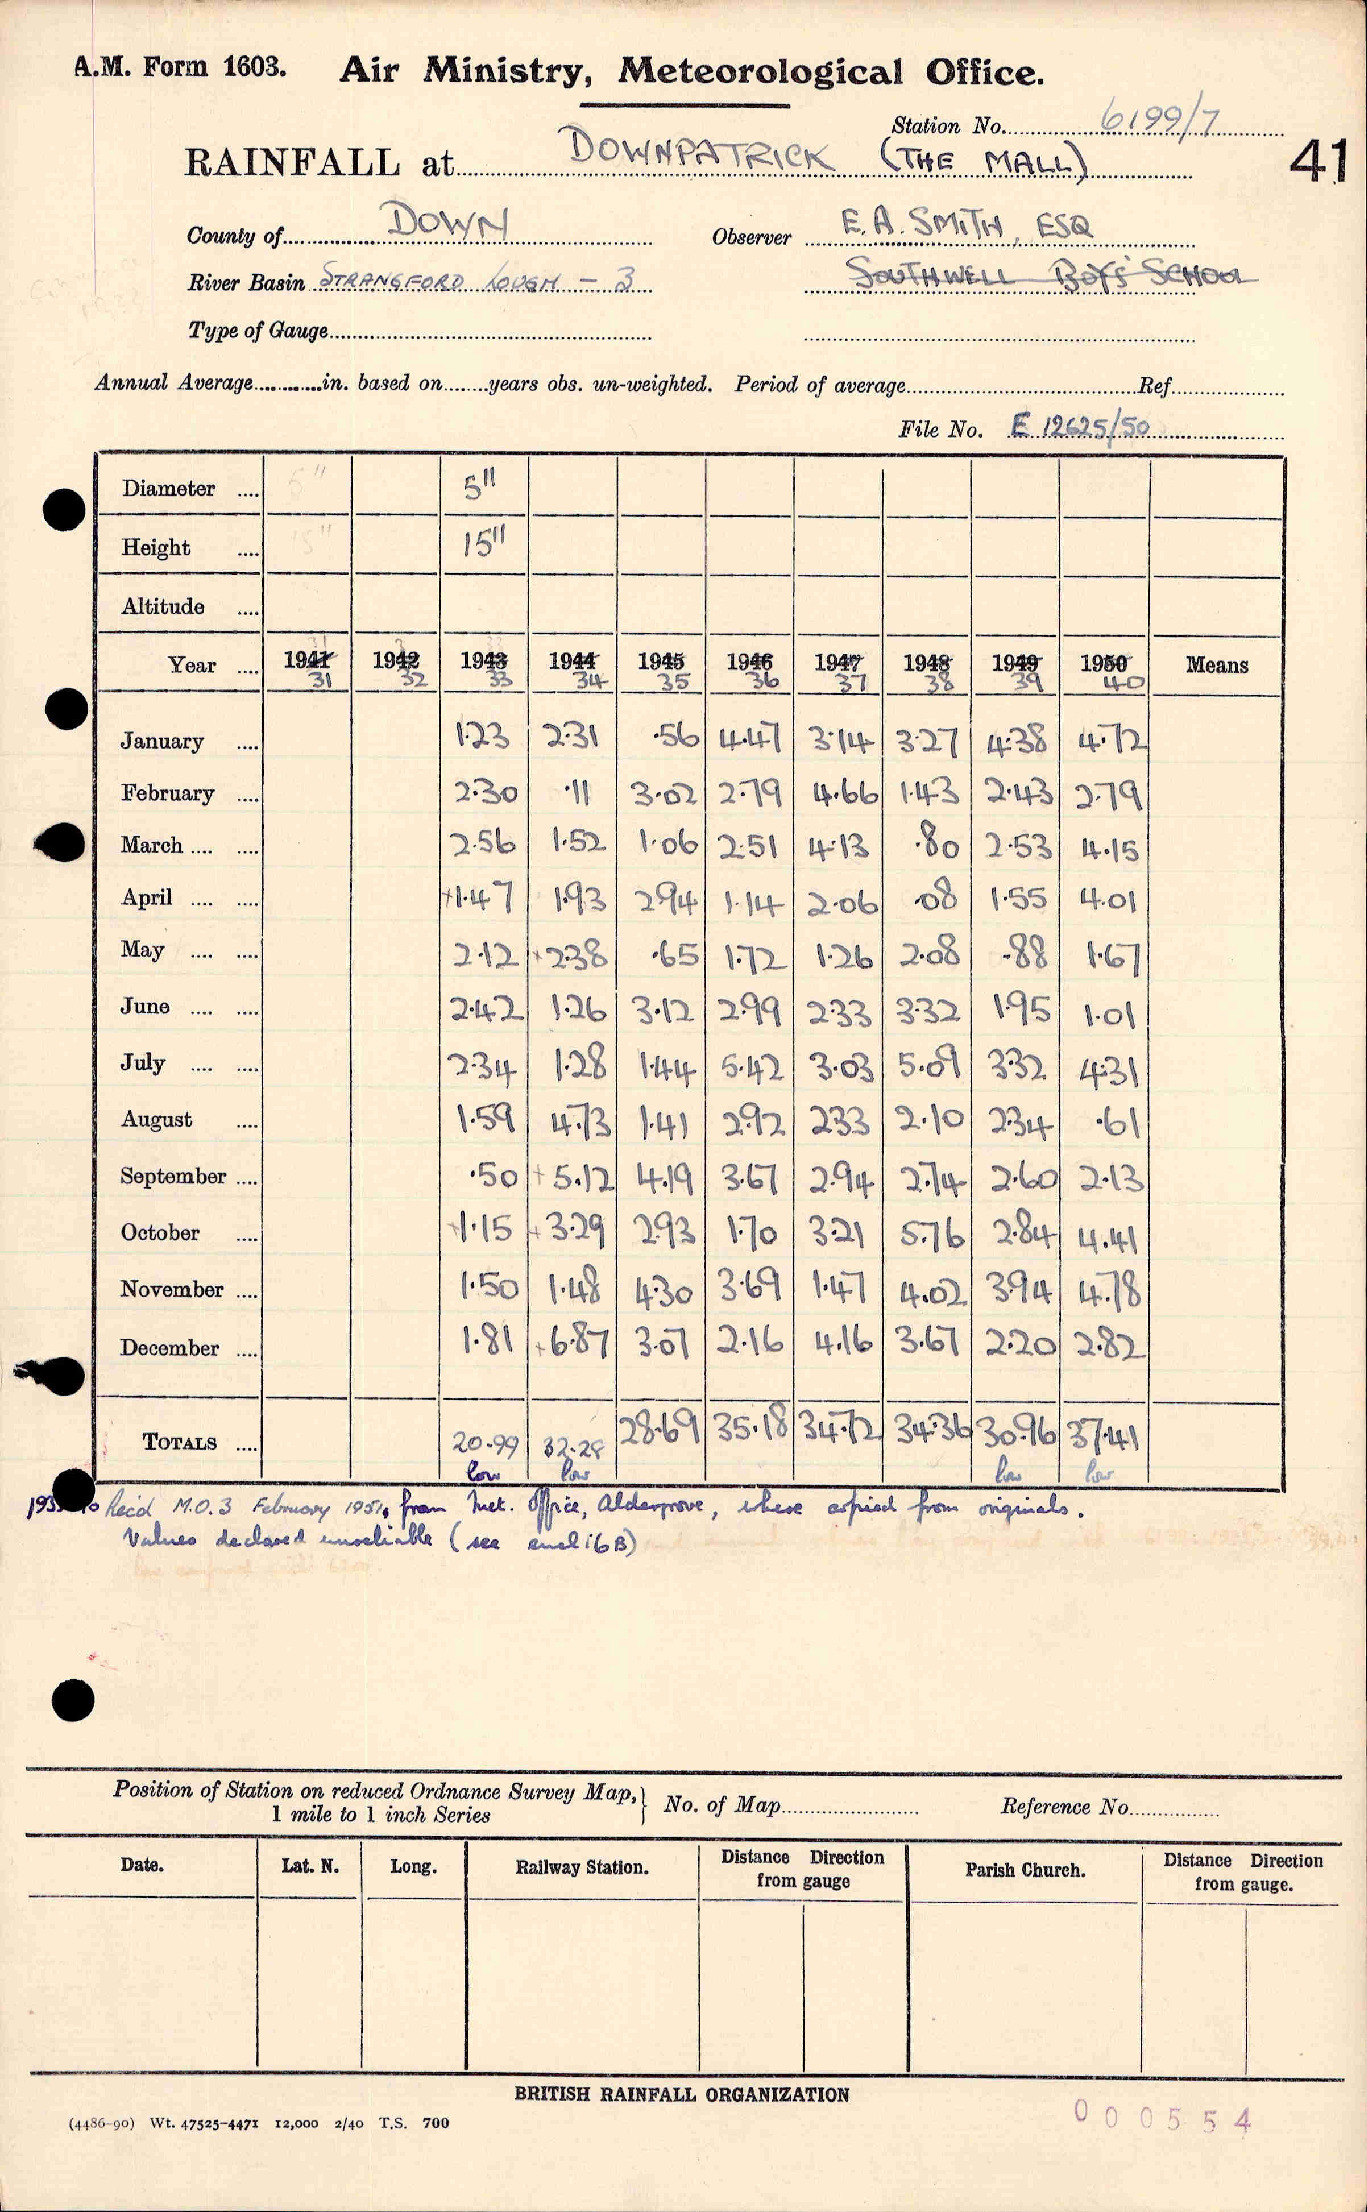 A.M. Form 1603. Air Ministry, Meteorological Office.
Station No. 6199/7
RAINFALL at DOWNPATRICK (THE MALL) 41
County of DOWN Observer E.A. SMITH, ESQ
River Basin STRANGFORD LOUGH - 3 SOUTHWELL BOYS' SCHOOL
Type of Gauge
Annual Average in. based on years obs. un-weighted. Period of average Ref.
File No. E 12625/50
Diameter .... 5" 5"
Height .... 15" 15"
Altitude ....
Year .... 1941 1942 1943 1944 1945 1946 1947 1948 1949 1950 Means
31 32 33 34 35 36 37 38 39 40
January .... 1.23 2.31 .56 4.47 3.14 3.27 4.38 4.72
February .... 2.30 .11 3.02 2.79 4.66 1.43 2.43 2.79
March .... .... 2.56 1.52 1.06 2.51 4.13 .80 2.53 4.15
April .... .... +1.47 1.93 2.94 1.14 2.06 .08 1.55 4.01
May .... .... 2.12 +2.38 .65 1.72 1.26 2.08 .88 1.67
June .... .... 2.42 1.26 3.12 2.99 2.33 3.32 1.95 1.01
July .... .... 2.34 1.28 1.44 5.42 3.03 5.09 3.32 4.31
August .... 1.59 4.73 1.41 2.92 2.33 2.10 2.34 .61
September .... .50 +5.12 4.19 3.67 2.94 2.74 2.60 2.13
October .... +1.15 +3.29 2.93 1.70 3.21 5.76 2.84 4.41
November .... 1.50 1.48 4.30 3.69 1.47 4.02 3.94 4.78
December .... 1.81 +6.87 3.07 2.16 4.16 3.67 2.20 2.82
TOTALS .... 20.99 32.28 28.69 35.18 34.72 34.36 30.96 37.41
low low low low
Rec'd M.O.3 February 1951, from Met. Office, Aldergrove, where copied from originals.
Values declared unreliable (see encl 16B)
Position of Station on reduced Ordnance Survey Map, } No. of Map Reference No.
1 mile to 1 inch Series
Date. Lat. N. Long. Railway Station. Distance Direction from gauge Parish Church. Distance Direction from gauge.
BRITISH RAINFALL ORGANIZATION
(4486-90) Wt. 47525-4471 12,000 2/40 T.S. 700
000554